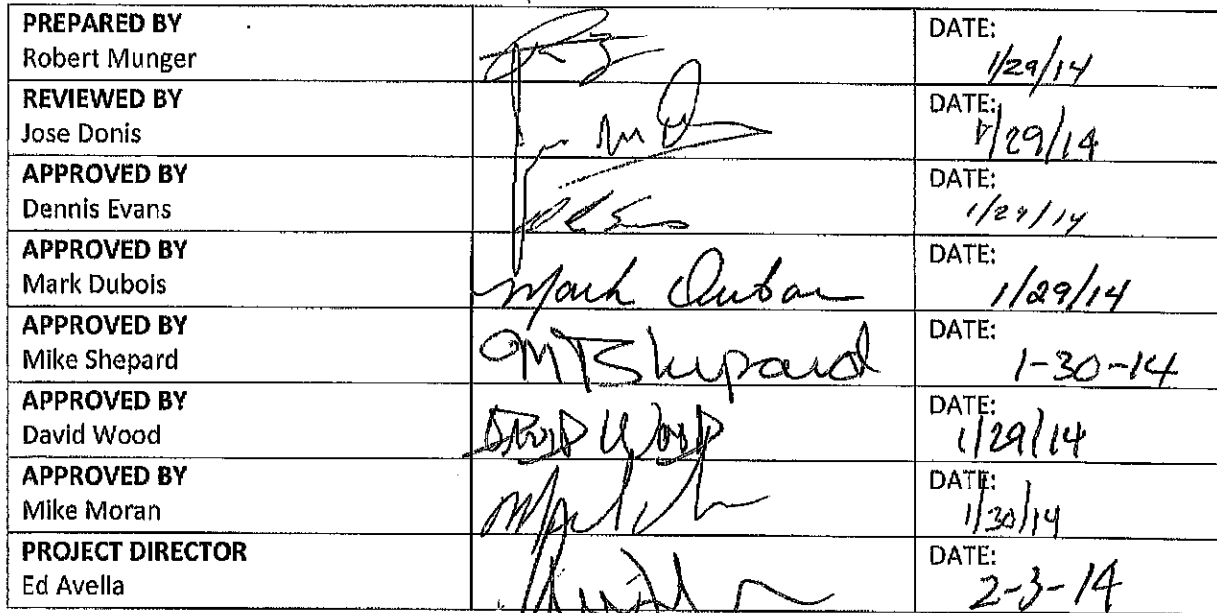 PREPARED BY
Robert Munger
DATE:
1/29/14
REVIEWED BY
Jose Donis
DATE:
1/29/14
APPROVED BY
Dennis Evans
DATE:
1/29/14
APPROVED BY
Mark Dubois
Mark Dubois
DATE:
1/29/14
APPROVED BY
Mike Shepard
MTShepard
DATE:
1-30-14
APPROVED BY
David Wood
DAVID WOOD
DATE:
1/29/14
APPROVED BY
Mike Moran
DATE:
1/30/14
PROJECT DIRECTOR
Ed Avella
DATE:
2-3-14